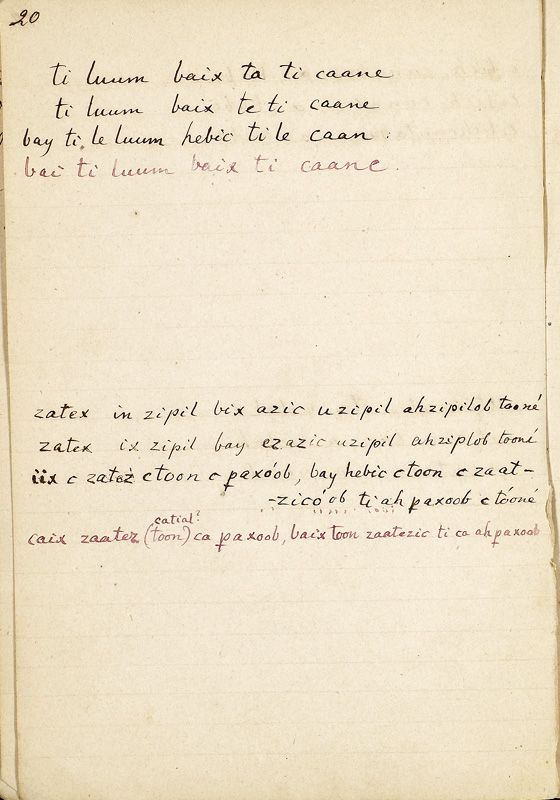 20
ti luum baix ta ti caane
ti luum baix te ti caane
bay ti le luum hebic ti le caan
bai ti luum baix ti caane.
zatex in zipil bix azic uzipil ahzipilob tooné
zatex ix zipil bay ezazic uzipil ahziplob tooné
iix c zatez ctoon c paxóob, bay hebic ctoon c zaat-
-zicó'ob ti ah paxoob ctóoné
catial?
caix zaatez (toon) ca paxoob, baix toon zaatezic ti ca ah paxoob